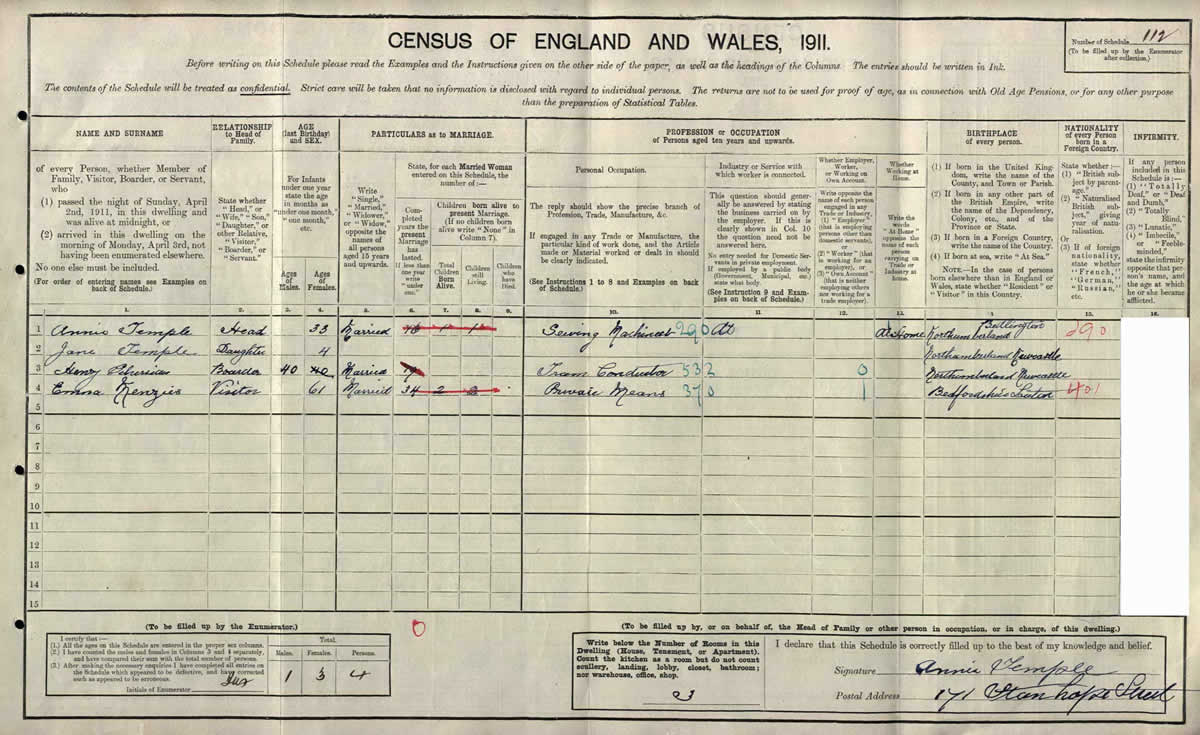 CENSUS OF ENGLAND AND WALES, 1911.
Number of Schedule 112
(To be filled up by the Enumerator
after collection.)
Before writing on this Schedule please read the Examples and the Instructions given on the other side of the paper, as well as the headings of the Columns. The entries should be written in Ink.
The contents of the Schedule will be treated as confidential. Strict care will be taken that no information is disclosed with regard to individual persons. The returns are not to be used for proof of age, as in connection with Old Age Pensions, or for any other purpose
than the preparation of Statistical Tables.
NAME AND SURNAME
of every Person, whether Member of
Family, Visitor, Boarder, or Servant,
who
(1) passed the night of Sunday, April
2nd, 1911, in this dwelling and
was alive at midnight, or
(2) arrived in this dwelling on the
morning of Monday, April 3rd, not
having been enumerated elsewhere.
No one else must be included.
(For order of entering names see Examples on
back of Schedule.)
RELATIONSHIP
to Head of
Family.
State whether
"Head," or
"Wife," "Son,"
"Daughter," or
other Relative,
"Visitor,"
"Boarder," or
"Servant."
AGE
(last Birthday)
and SEX.
For Infants
under one year
state the age
in months as
"under one month,"
"one month,"
etc.
Ages
of
Males.
Ages
of
Females.
PARTICULARS as to MARRIAGE.
Write
"Single,"
"Married,"
"Widower,"
or "Widow,"
opposite the
names of
all persons
aged 15 years
and upwards.
State, for each Married Woman
entered on this Schedule, the
number of:—
Com-
pleted
years the
present
Marriage
has
lasted.
If less than
one year
write
"under
one."
Children born alive to
present Marriage.
(If no children born
alive write "None" in
Column 7).
Total
Children
Born
Alive.
Children
still
Living.
Children
who
have
Died.
PROFESSION or OCCUPATION
of Persons aged ten years and upwards.
Personal Occupation.
The reply should show the precise branch of
Profession, Trade, Manufacture, &c.
If engaged in any Trade or Manufacture, the
particular kind of work done, and the Article
made or Material worked or dealt in should
be clearly indicated.
(See Instructions 1 to 8 and Examples on back
of Schedule.)
Industry or Service with
which worker is connected.
This question should gener-
ally be answered by stating
the business carried on by
the employer. If this is
clearly shown in Col. 10
the question need not be
answered here.
No entry needed for Domestic Ser-
vants in private employment.
If employed by a public body
(Government, Municipal, etc.)
state what body.
(See Instruction 9 and Exam-
ples on back of Schedule.)
Whether Employer,
Worker,
or Working on
Own Account.
Write opposite the
name of each person
engaged in any
Trade or Industry,
(1) "Employer"
(that is employing
persons other than
domestic servants),
or
(2) "Worker" (that
is working for an
employer), or
(3) "Own Account"
(that is neither
employing others
nor working for a
trade employer).
Whether
Working at
Home.
Write the
words
"At Home"
opposite the
name of each
person
carrying on
Trade or
Industry at
home.
BIRTHPLACE
of every person.
(1) If born in the United King-
dom, write the name of the
County, and Town or Parish.
(2) If born in any other part of
the British Empire, write
the name of the Dependency,
Colony, etc., and of the
Province or State.
(3) If born in a Foreign Country,
write the name of the Country.
(4) If born at sea, write "At Sea."
NOTE.—In the case of persons
born elsewhere than in England or
Wales, state whether "Resident" or
"Visitor" in this Country.
NATIONALITY
of every Person
born in a
Foreign Country.
State whether:—
(1) "British sub-
ject by parent-
age,"
(2) "Naturalised
British sub-
ject," giving
year of natu-
ralisation.
Or
(3) If of foreign
nationality,
state whether
"French,"
"German,"
"Russian,"
etc.
INFIRMITY.
If any person
included in this
Schedule is:—
(1) "Totally
Deaf," or "Deaf
and Dumb,"
(2) "Totally
Blind,"
(3) "Lunatic,"
(4) "Imbecile,"
or "Feeble-
minded,"
state the infirmity
opposite that per-
son's name, and
the age at which
he or she became
afflicted.
1. 2. 3. 4. 5. 6. 7. 8. 9. 10. 11. 12. 13. 14. 15. 16.
1 Annie Temple Head 33 Married 1 Sewing Machinist 290 At At Home Northumberland 290
2 Jane Temple Daughter 4 Northumberland Newcastle
3 Henry Boarder 40 40 Married Tram Conductor 532 0 Northumberland Newcastle
4 Emma Menzies Visitor 61 Married 34 2 2 Private Means 370 1 Bedfordshire Luton 401
5
6
7
8
9
10
11
12
13
14
15
(To be filled up by the Enumerator.)
I certify that:—
(1.) All the ages on this Schedule are entered in the proper sex columns.
(2.) I have counted the males and females in Columns 3 and 4 separately,
and have compared their sum with the total number of persons.
(3.) After making the necessary enquiries I have completed all entries on
the Schedule which appeared to be defective, and have corrected
such as appeared to be erroneous.
Initials of Enumerator
Total.
Males. Females. Persons.
1 3 4
0
(To be filled up by, or on behalf of, the Head of Family or other person in occupation, or in charge, of this dwelling.)
Write below the Number of Rooms in this
Dwelling (House, Tenement, or Apartment).
Count the kitchen as a room but do not count
scullery, landing, lobby, closet, bathroom;
nor warehouse, office, shop.
3
I declare that this Schedule is correctly filled up to the best of my knowledge and belief.
Signature Annie Temple
Postal Address 171 Stanhope Street